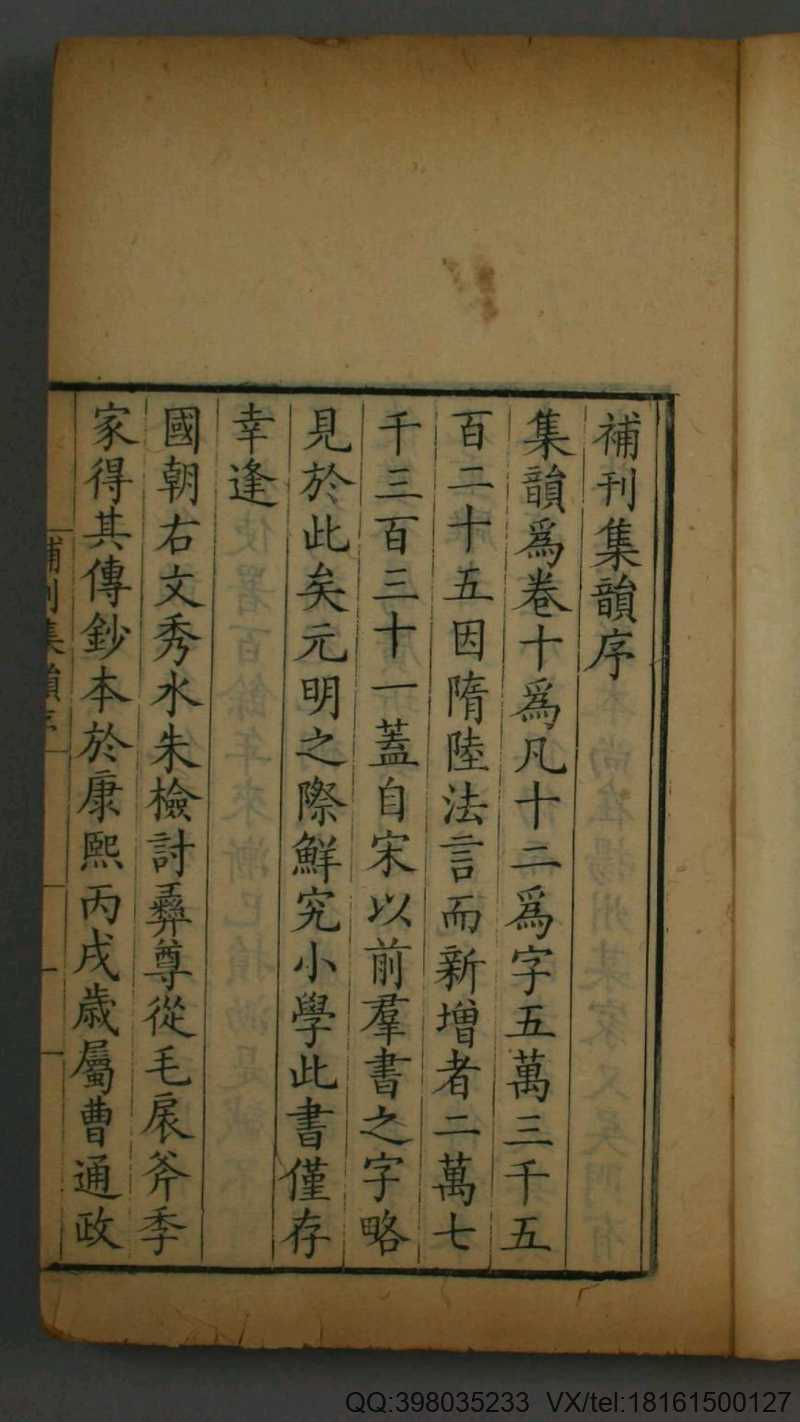 補刊集韻序
集韻爲卷十爲凡十二爲字五萬三千五
百二十五因隋陸法言而新增者二萬七
千三百三十一蓋自宋以前羣書之字略
見於此矣元明之際鮮究小學此書僅存
幸逢
國朝右文秀水朱檢討彝尊從毛扆斧季
家得其傳鈔本於康熙丙戌歲屬曹通政
補刊集韻序
一
QQ:398035233 VX/tel:18161500127